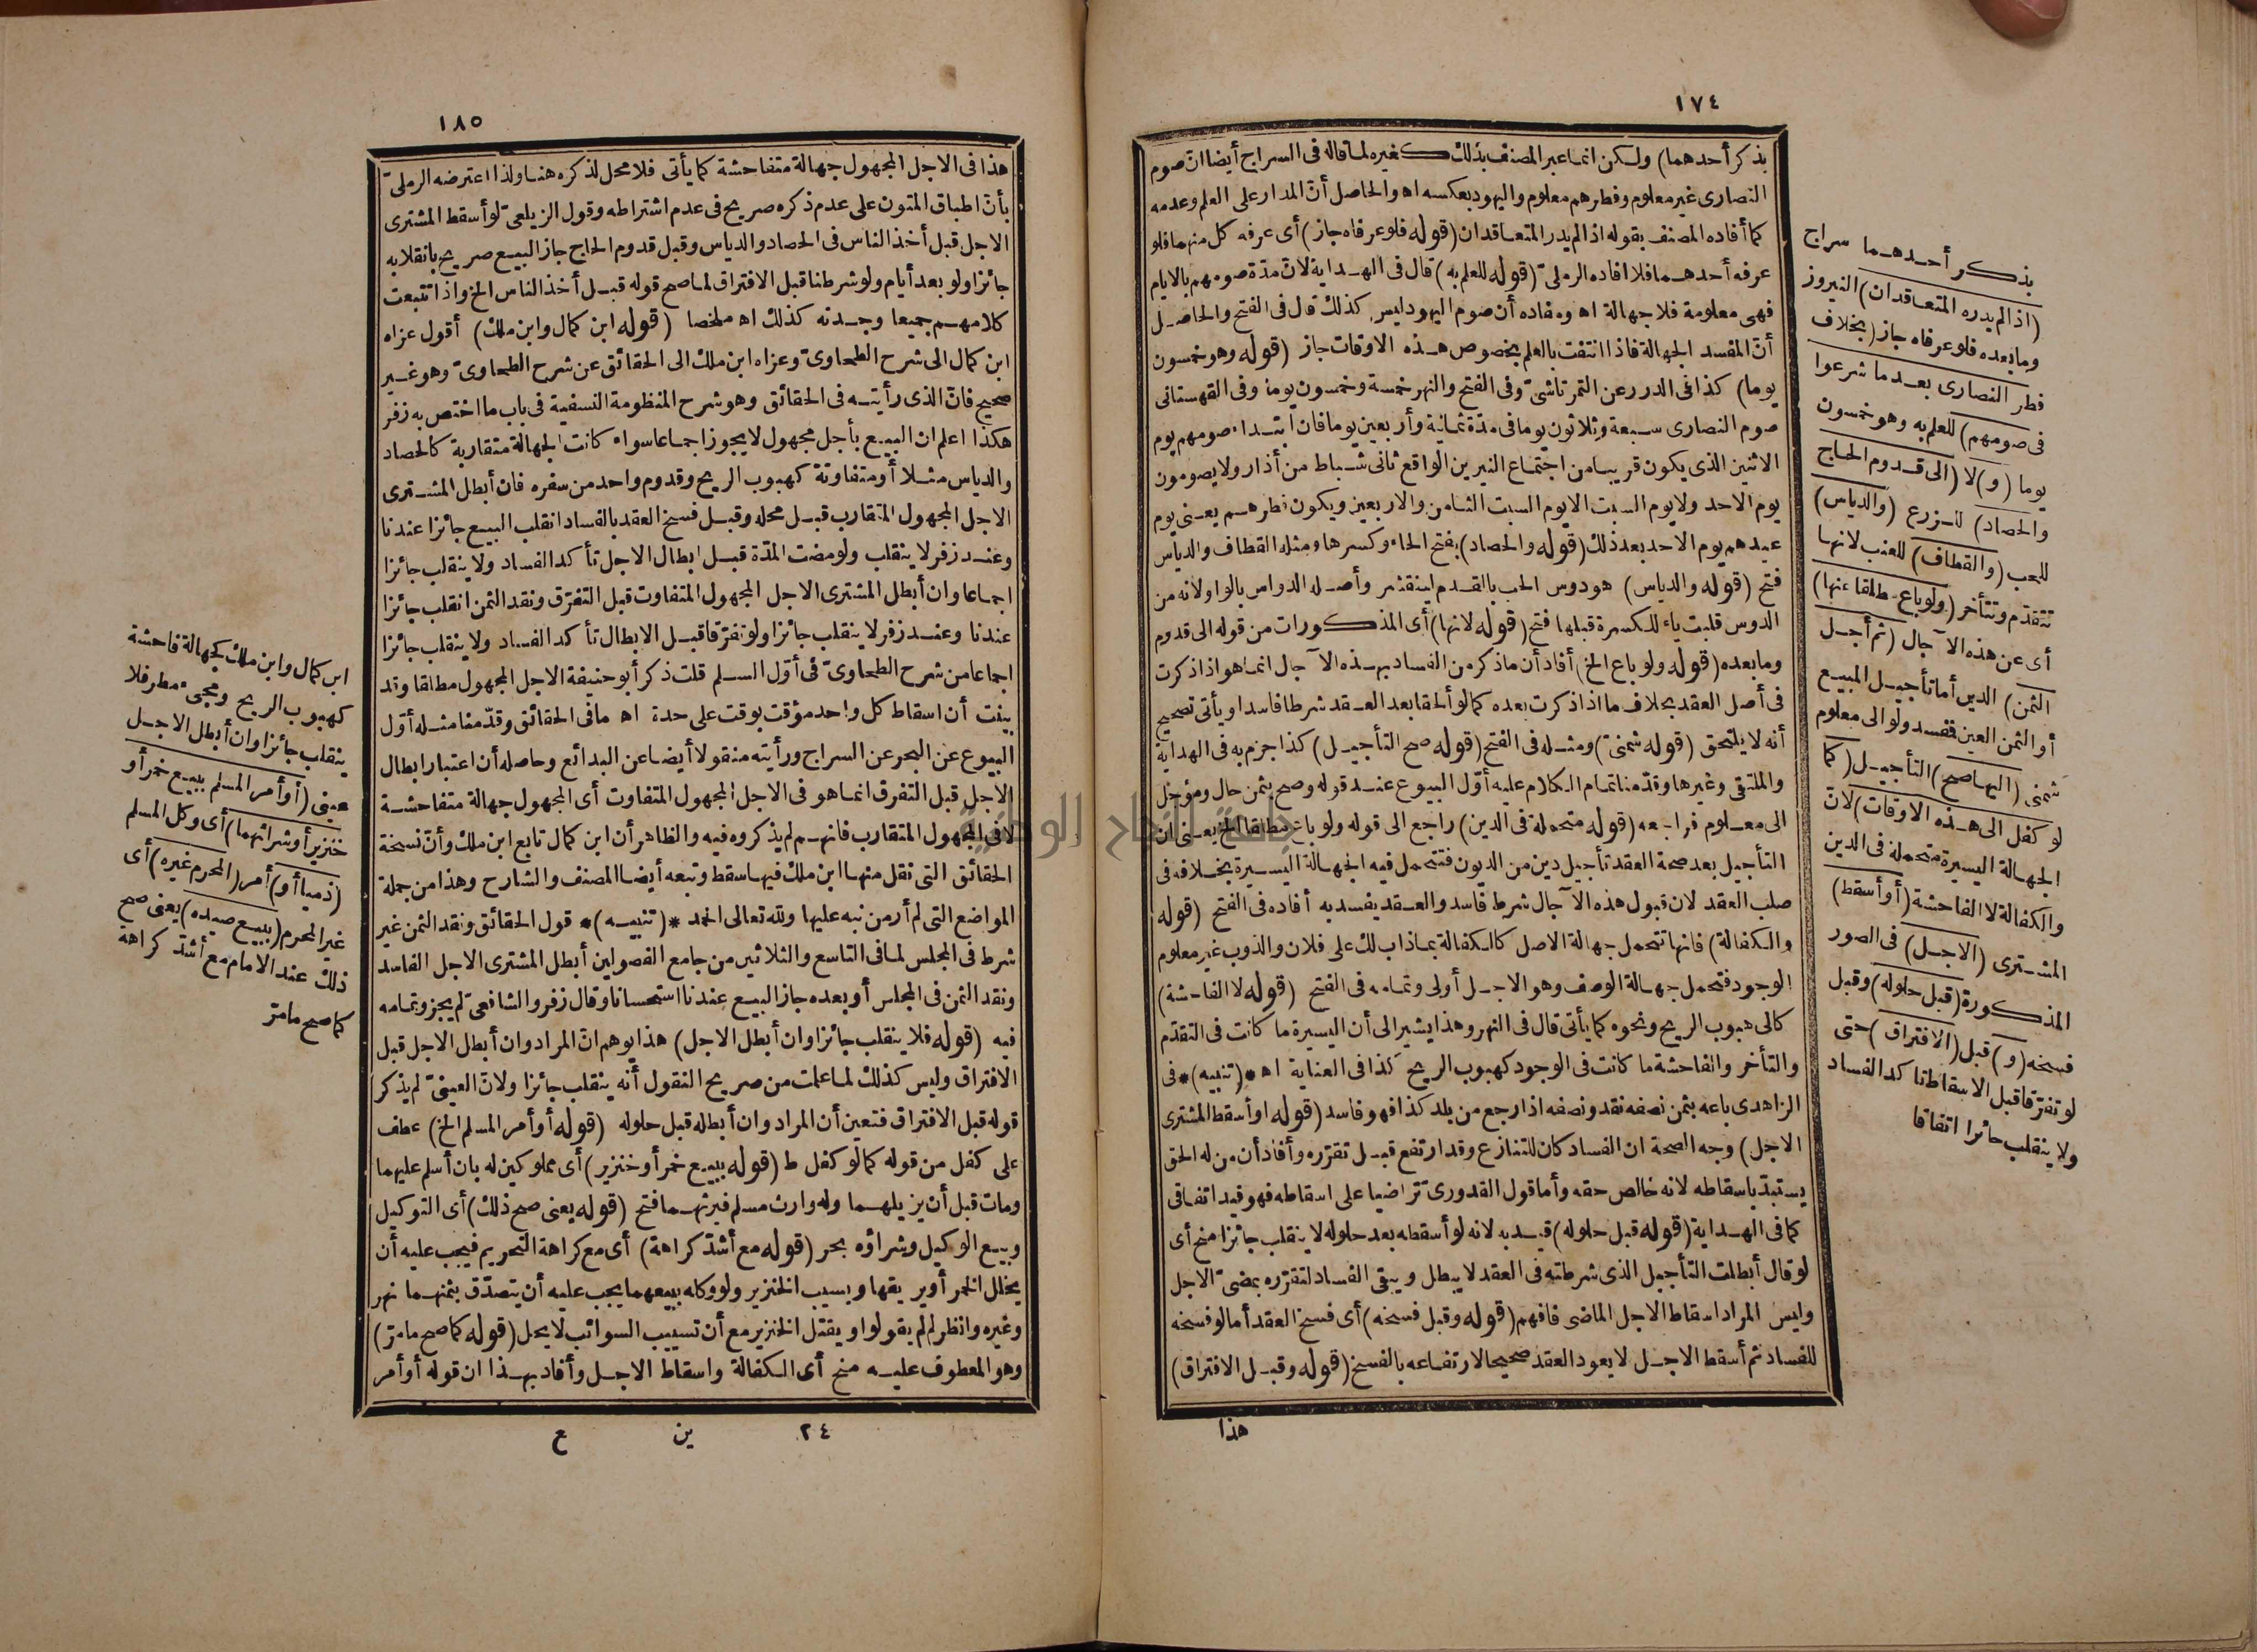 ١٧٤
بذكر أحدهما) ولكن انما عبر المصنف بذلك كغيره لما قاله فى السراج أيضا ان صوم
النصارى غير معلوم وفطرهم معلوم واليهود بعكسه اه والحاصل أنّ المدار على العلم وعدمه
كما أفاده المصنف بقوله اذا لم يدر المتعاقدان (قوله فلو عرفاه جاز) أى عرفه كل منهما فلو
عرفه أحدهما فلا افاده الرملىّ (قوله للعلم به) قال فى الهداية لانّ مدّة صومهم بالايام
فهى معلومة فلا جهالة اه ومفاده أن صوم اليهود ليس كذلك قال فى الفتح والحاصل
أنّ المفسد الجهالة فاذا انتفت بالعلم بخصوص هذه الاوقات جاز (قوله وهو خمسون
يوما) كذا فى الدرر عن التمرتاشىّ وفى الفتح والنهر خمسة وخمسون يوما وفى القهستانى
صوم النصارى سبعة وثلاثون يوما فى مدّة ثمانية وأربعين يوما فان ابتداء صومهم يوم
الاثنين الذى يكون قريبا من اجتماع النيرين الواقع ثانى شباط من أذار ولا يصومون
يوم الاحد ولا يوم السبت الا يوم السبت الثامن والاربعين ويكون فطرهم يعنى يوم
عيدهم يوم الاحد بعد ذلك (قوله والحصاد) بفتح الحاء وكسرها ومثله القطاف والدياس
فتح (قوله والدياس) هو دوس الحب بالقدم لينقشر وأصله الدواس بالواو لانه من
الدوس قلبت ياء للكسرة قبلها فتح (قوله لانها) أى المذكورات من قوله الى قدوم
وما بعده (قوله ولو باع الخ) أفاد أن ما ذكر من الفساد بهذه الآجال انما هو اذا ذكرت
فى أصل العقد بخلاف ما اذا ذكرت بعده كما لو ألحقا بعد العقد شرطا فاسدا ويأتى تصحيح
أنه لا يلتحق (قوله شمنىّ) ومثله فى الفتح (قوله صح التأجيل) كذا جزم به فى الهداية
والملتقى وغيرها وقدّمنا تمام الكلام عليه أوّل البيوع عند قوله وصح بثمن حال ومؤجل
الى معلوم فراجعه (قوله متحملة فى الدين) راجع الى قوله ولو باع مطلقا الخ يعنى ان
التأجيل بعد صحة العقد تأجيل دين من الديون فتتحمل فيه الجهالة اليسيرة بخلافه فى
صلب العقد لان قبول هذه الآجال شرط فاسد والعقد يفسد به أفاده فى الفتح (قوله
والكفالة) فانها تتحمل جهالة الاصل كالكفالة بما ذاب لك على فلان والذوب غير معلوم
الوجود فتحمل جهالة الوصف وهو الاجل أولى وتمامه فى الفتح (قوله لا الفاحشة)
كالى هبوب الريح ونحوه كما يأتى قال فى النهر وهذا يشير الى أن اليسيرة ما كانت فى التقدّم
والتأخر والفاحشة ما كانت فى الوجود كهبوب الريح كذا فى العناية اه *(تنبيه)* فى
الزاهدى باعه بثمن نصفه نقد ونصفه اذا رجع من بلد كذا فهو فاسد (قوله او أسقط المشترى
الاجل) وجه الصحة ان الفساد كان للتنازع وقد ارتفع قبل تقرّره وأفاد أن من له الحق
يستبدّ باسقاطه لانه خالص حقه وأما قول القدورىّ تراضيا على اسقاطه فهو قيد اتفاقى
كما فى الهداية (قوله قبل حلوله) قيد به لانه لو أسقطه بعد حلوله لا ينقلب جائزا منح أى
لو قال أبطلت التأجيل الذى شرطته فى العقد لا يبطل ويبقى الفساد لتقرّره بمضىّ الاجل
وليس المراد اسقاط الاجل الماضى فافهم (قوله وقبل فسخه) أى فسخ العقد أما لو فسخه
للفساد ثم أسقط الاجل لا يعود العقد صحيحا لارتفاعه بالفسخ (قوله وقبل الافتراق)
هذا
بذكر أحدهما سراج
(اذا لم يدره المتعاقدان) النيروز
وما بعده فلو عرفاه جاز (بخلاف
فطر النصارى بعد ما شرعوا
فى صومهم) للعلم به وهو خمسون
يوما (و) لا (الى قدوم الحاج
والحصاد) للزرع (والدياس)
للحب (والقطاف) للعنب لانها
تتقدّم وتتأخر (ولو باع مطلقا عنها)
أى عن هذه الآجال (ثم أجل
الثمن) الدين أما تأجيل المبيع
أو الثمن العين فمفسد ولو الى معلوم
شمنى (اليها صح) التأجيل (كما
لو كفل الى هذه الاوقات) لانّ
الجهالة اليسيرة متحملة فى الدين
والكفالة لا الفاحشة (أو أسقط)
المشترى (الاجل) فى الصور
المذكورة (قبل حلوله) وقبل
فسخه (و) قبل (الافتراق) حتى
لو تفرّقا قبل الاسقاط تأكد الفساد
ولا ينقلب جائزا اتفاقا
١٨٥
هذا فى الاجل المجهول جهالة متفاحشة كما يأتى فلا محل لذكره هنا ولذا اعترضه الرملىّ
بأنّ اطباق المتون على عدم ذكره صريح فى عدم اشتراطه وقول الزيلعىّ لو أسقط المشترى
الاجل قبل أخذ الناس فى الحصاد والدياس وقبل قدوم الحاج جاز البيع صريح بانقلابه
جائزا ولو بعد أيام ولو شرطنا قبل الافتراق لما صح قوله قبل أخذ الناس الخ واذا تتبعت
كلامهم جميعا وجدته كذلك اه ملخصا (قوله ابن كمال وابن ملك) أقول عزاه
ابن كمال الى شرح الطحاوىّ وعزاه ابن ملك الى الحقائق عن شرح الطحاوىّ وهو غير
صحيح فانّ الذى رأيته فى الحقائق وهو شرح المنظومة النسفية فى باب ما اختص به زفر
هكذا اعلم ان البيع بأجل مجهول لا يجوز اجماعا سواء كانت الجهالة متقاربة كالحصاد
والدياس مثلا أو متفاوتة كهبوب الريح وقدوم واحد من سفره فان أبطل المشترى
الاجل المجهول المتقارب قبل محله وقبل فسخ العقد بالفساد انقلب البيع جائزا عندنا
وعند زفر لا ينقلب ولو مضت المدّة قبل ابطال الاجل تأكد الفساد ولا ينقلب جائزا
اجماعا وان أبطل المشترى الاجل المجهول المتفاوت قبل التفرّق ونقد الثمن انقلب جائزا
عندنا وعند زفر لا ينقلب جائزا ولو تفرّقا قبل الابطال تأكد الفساد ولا ينقلب جائزا
اجماعا من شرح الطحاوىّ فى أوّل السلم قلت ذكر أبو حنيفة الاجل المجهول مطلقا وقد
بينت أن اسقاط كل واحد مؤقت بوقت على حدة اه ما فى الحقائق وقدّمنا مثله أوّل
البيوع عن البحر عن السراج ورأيته منقولا أيضا عن البدائع وحاصله أن اعتبار ابطال
الاجل قبل التفرق انما هو فى الاجل المجهول المتفاوت أى المجهول جهالة متفاحشة
لا فى المجهول المتقارب فانهم لم يذكروه فيه والظاهر أن ابن كمال تابع ابن ملك وأنّ نسخة
الحقائق التى نقل منها ابن ملك فيها سقط وتبعه أيضا المصنف والشارح وهذا من جملة
المواضع التى لم أر من نبه عليها ولله تعالى الحمد *(تنبيه)* قول الحقائق ونقد الثمن غير
شرط فى المجلس لما فى التاسع والثلاثين من جامع الفصولين أبطل المشترى الاجل الفاسد
ونقد الثمن فى المجلس أو بعده جاز البيع عندنا استحسانا وقال زفر والشافعىّ لم يجز وتمامه
فيه (قوله فلا ينقلب جائزا وان أبطل الاجل) هذا يوهم انّ المراد وان أبطل الاجل قبل
الافتراق وليس كذلك لما علمت من صريح النقول أنه ينقلب جائزا ولانّ العينىّ لم يذكر
قوله قبل الافتراق فتعين أن المراد وان أبطله قبل حلوله (قوله أو أمر المسلم الخ) عطف
على كفل من قوله كما لو كفل ط (قوله ببيع خمر أو خنزير) أى مملوكين له بان أسلم عليهما
ومات قبل أن يزيلهما وله وارث مسلم فيرثهما فتح (قوله يعنى صح ذلك) أى التوكيل
وبيع الوكيل وشراؤه بحر (قوله مع أشدّ كراهة) أى مع كراهة التحريم فيجب عليه أن
يخلل الخمر أو يريقها ويسيب الخنزير ولو وكله ببيعهما يجب عليه أن يتصدّق بثمنهما نهر
وغيره وانظر لم لم يقولوا ويقتل الخنزير مع أن تسييب السوائب لا يحل (قوله كما صح ما مرّ)
وهو المعطوف عليه منح أى الكفالة واسقاط الاجل وأفاد بهذا ان قوله أو أمر
٢٤ ين ع
ابن كمال وابن ملك كجهالة فاحشة
كهبوب الريح ومجىء مطر فلا
ينقلب جائزا وان أبطل الاجل
عينى (أو أمر المسلم ببيع خمر أو
خنزير أو شرائهما) أى وكل المسلم
(ذميا أو) أمر (المحرم غيره) أى
غير المحرم (ببيع صيده) يعنى صح
ذلك عند الامام مع أشدّ كراهة
كما صح ما مرّ
جامعة النجاح الوطنية